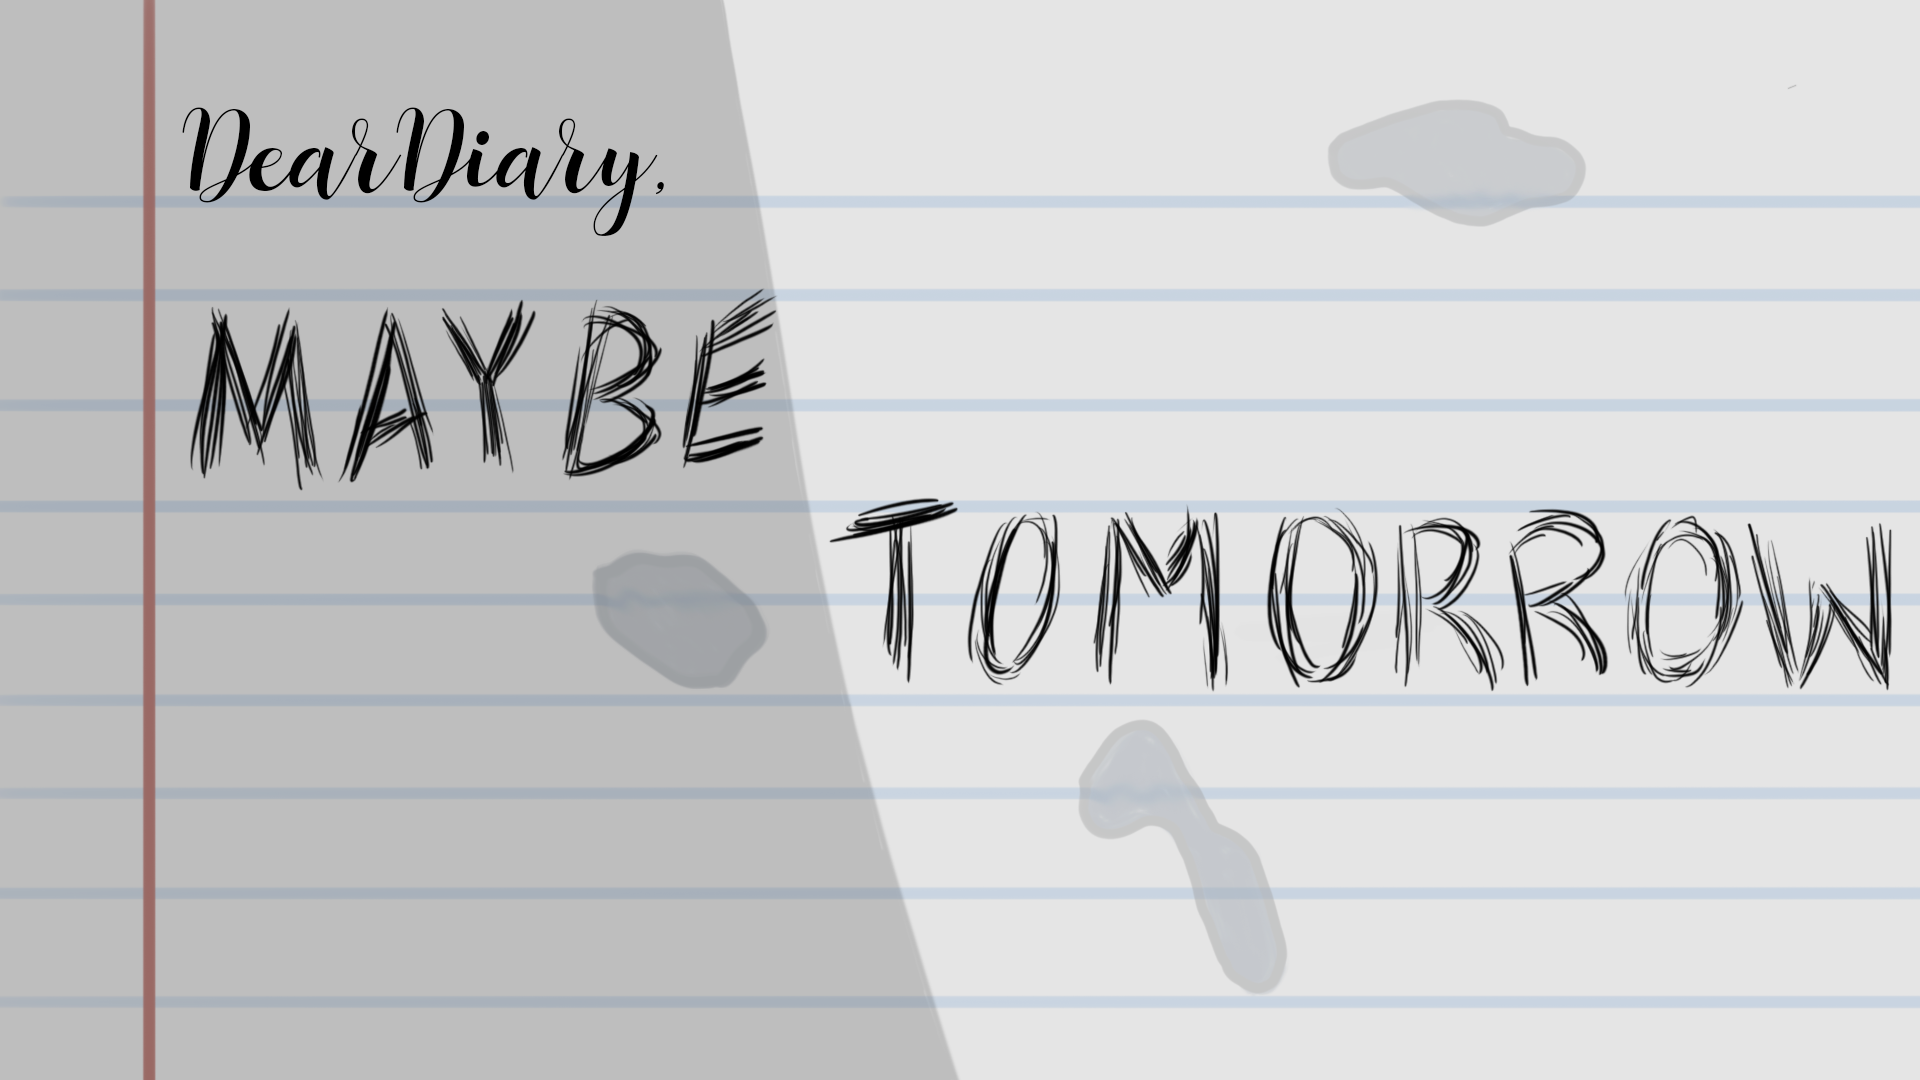 Dear Diary,
MAYBE
TOMORROW